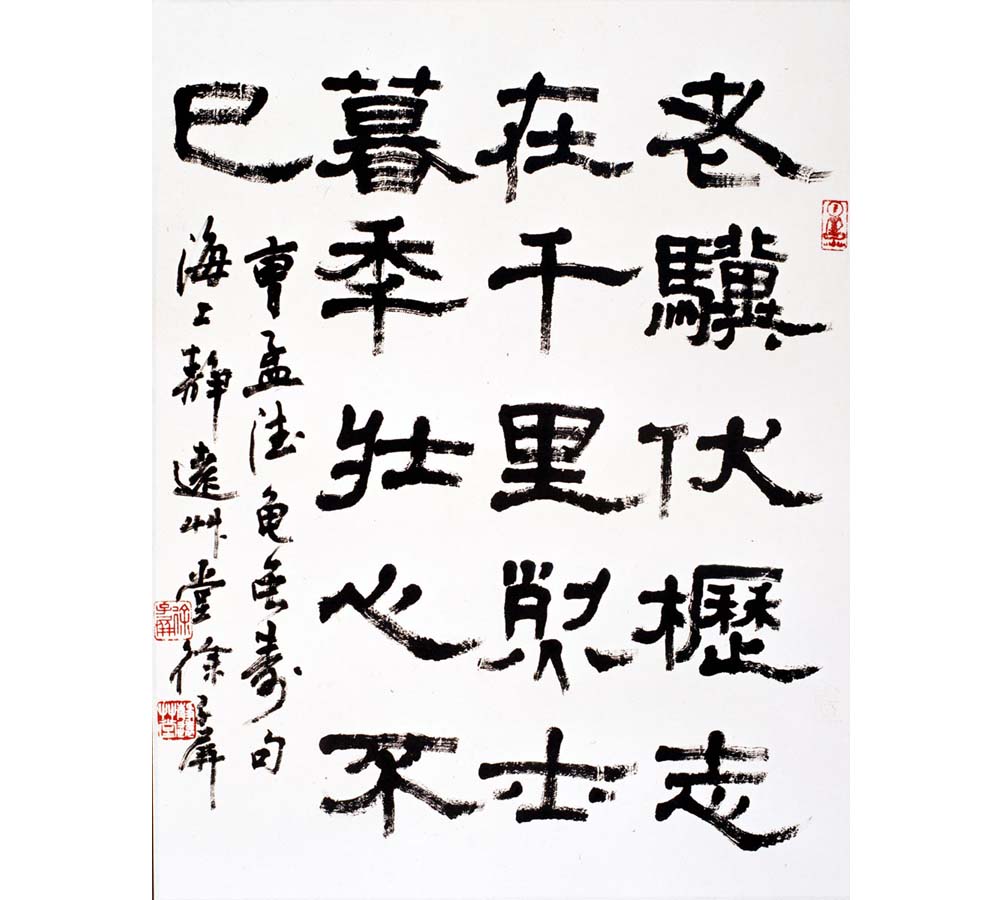 老驥伏櫪志
在千里烈士
暮年壯心不
已
曹孟德龜虽壽句
海上靜遠艸堂徐子屏